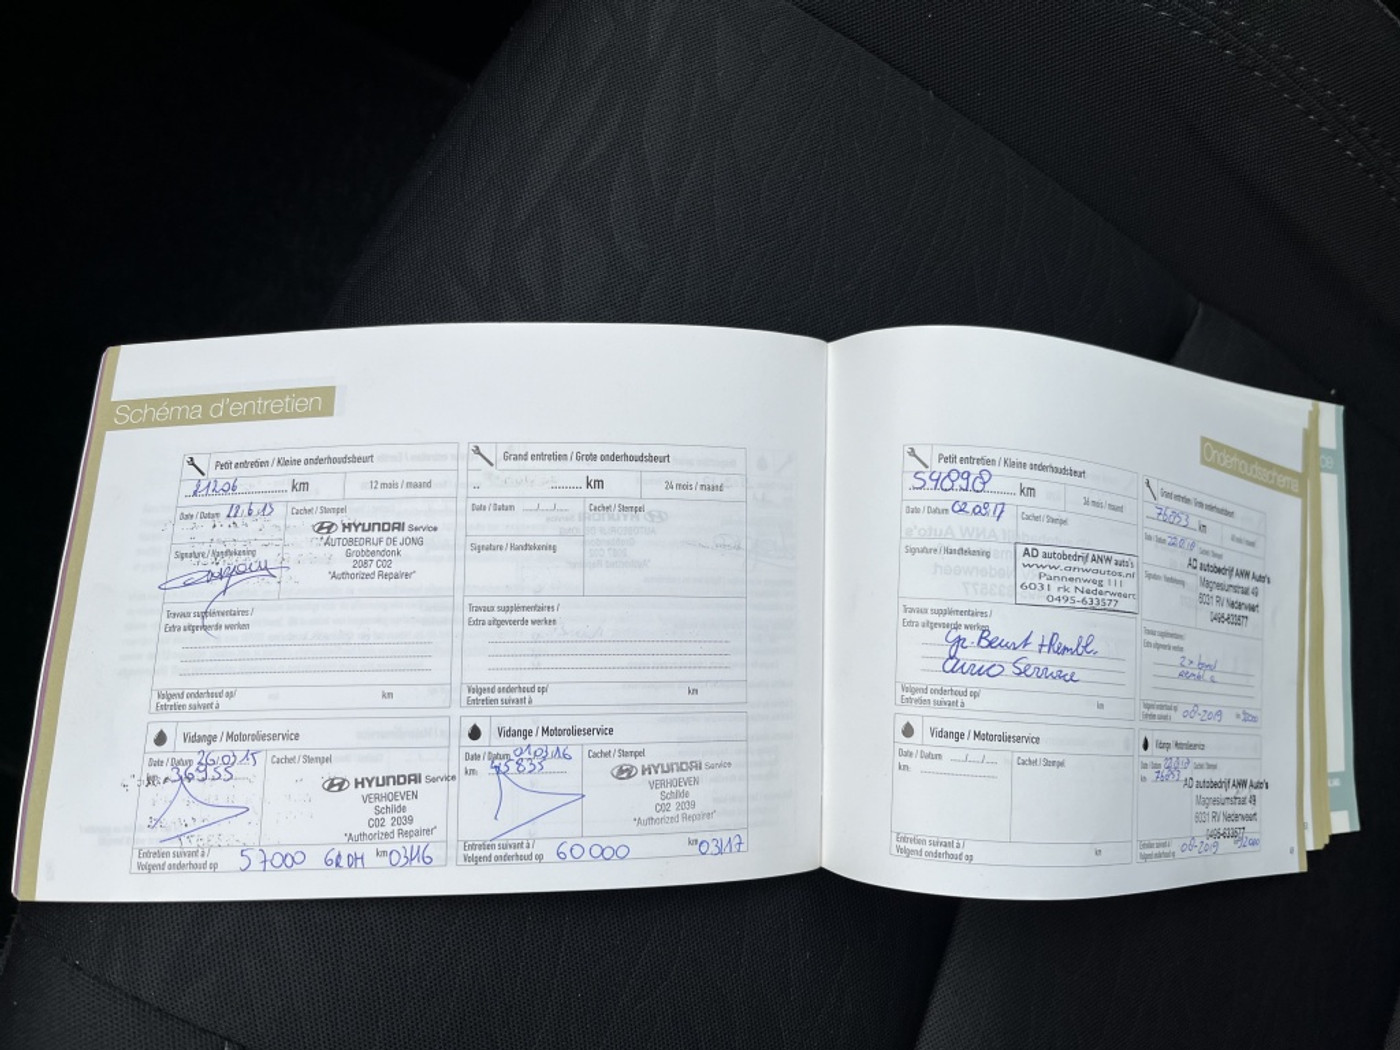 Schéma d'entretien
Petit entretien / Kleine onderhoudsbeurt
21206 km
12 mois / maand
Date / Datum 18.6.13
Cachet / Stempel
HYUNDAI Service
AUTOBEDRIJF DE JONG
Grobbendonk
2087 C02
"Authorized Repairer"
Signature / Handtekening
Travaux supplémentaires /
Extra uitgevoerde werken
Volgend onderhoud op/
Entretien suivant à
km
Grand entretien / Grote onderhoudsbeurt
km
24 mois / maand
Date / Datum
Cachet / Stempel
Signature / Handtekening
Travaux supplémentaires /
Extra uitgevoerde werken
Volgend onderhoud op/
Entretien suivant à
km
Vidange / Motorolieservice
Date / Datum 26/03/15
km: 36955
Cachet / Stempel
HYUNDAI Service
VERHOEVEN
Schilde
C02 2039
"Authorized Repairer"
Entretien suivant à /
Volgend onderhoud op
57000 GROH km 03/16
Vidange / Motorolieservice
Date / Datum 01/03/16
km: 45835
Cachet / Stempel
HYUNDAI Service
VERHOEVEN
Schilde
C02 2039
"Authorized Repairer"
Entretien suivant à /
Volgend onderhoud op
60000 km 03/17
Onderhoudsschema
Petit entretien / Kleine onderhoudsbeurt
54898 km
36 mois / maand
Date / Datum 02.08.17
Cachet / Stempel
Signature / Handtekening
AD autobedrijf ANW auto's
www.anwautos.nl
Pannenweg 111
6031 rk Nederweert
0495-633577
Travaux supplémentaires /
Extra uitgevoerde werken
Gr. Beurt + Rembl.
Airco Service
Volgend onderhoud op/
Entretien suivant à
km
Grand entretien / Grote onderhoudsbeurt
76853 km
Date / Datum
Cachet / Stempel
AD autobedrijf ANW Auto's
Magnesiumstraat 49
6031 RV Nederweert
0495-633577
Signature / Handtekening
Travaux supplémentaires /
Extra uitgevoerde werken
Volgend onderhoud op/
Entretien suivant à
08-2019
Vidange / Motorolieservice
Date / Datum
km:
Cachet / Stempel
Entretien suivant à /
Volgend onderhoud op
km
Vidange / Motorolieservice
Date / Datum
Cachet / Stempel
km: 76853
AD autobedrijf ANW Auto's
Magnesiumstraat 49
6031 RV Nederweert
0495-633577
Entretien suivant à /
Volgend onderhoud op
08-2019